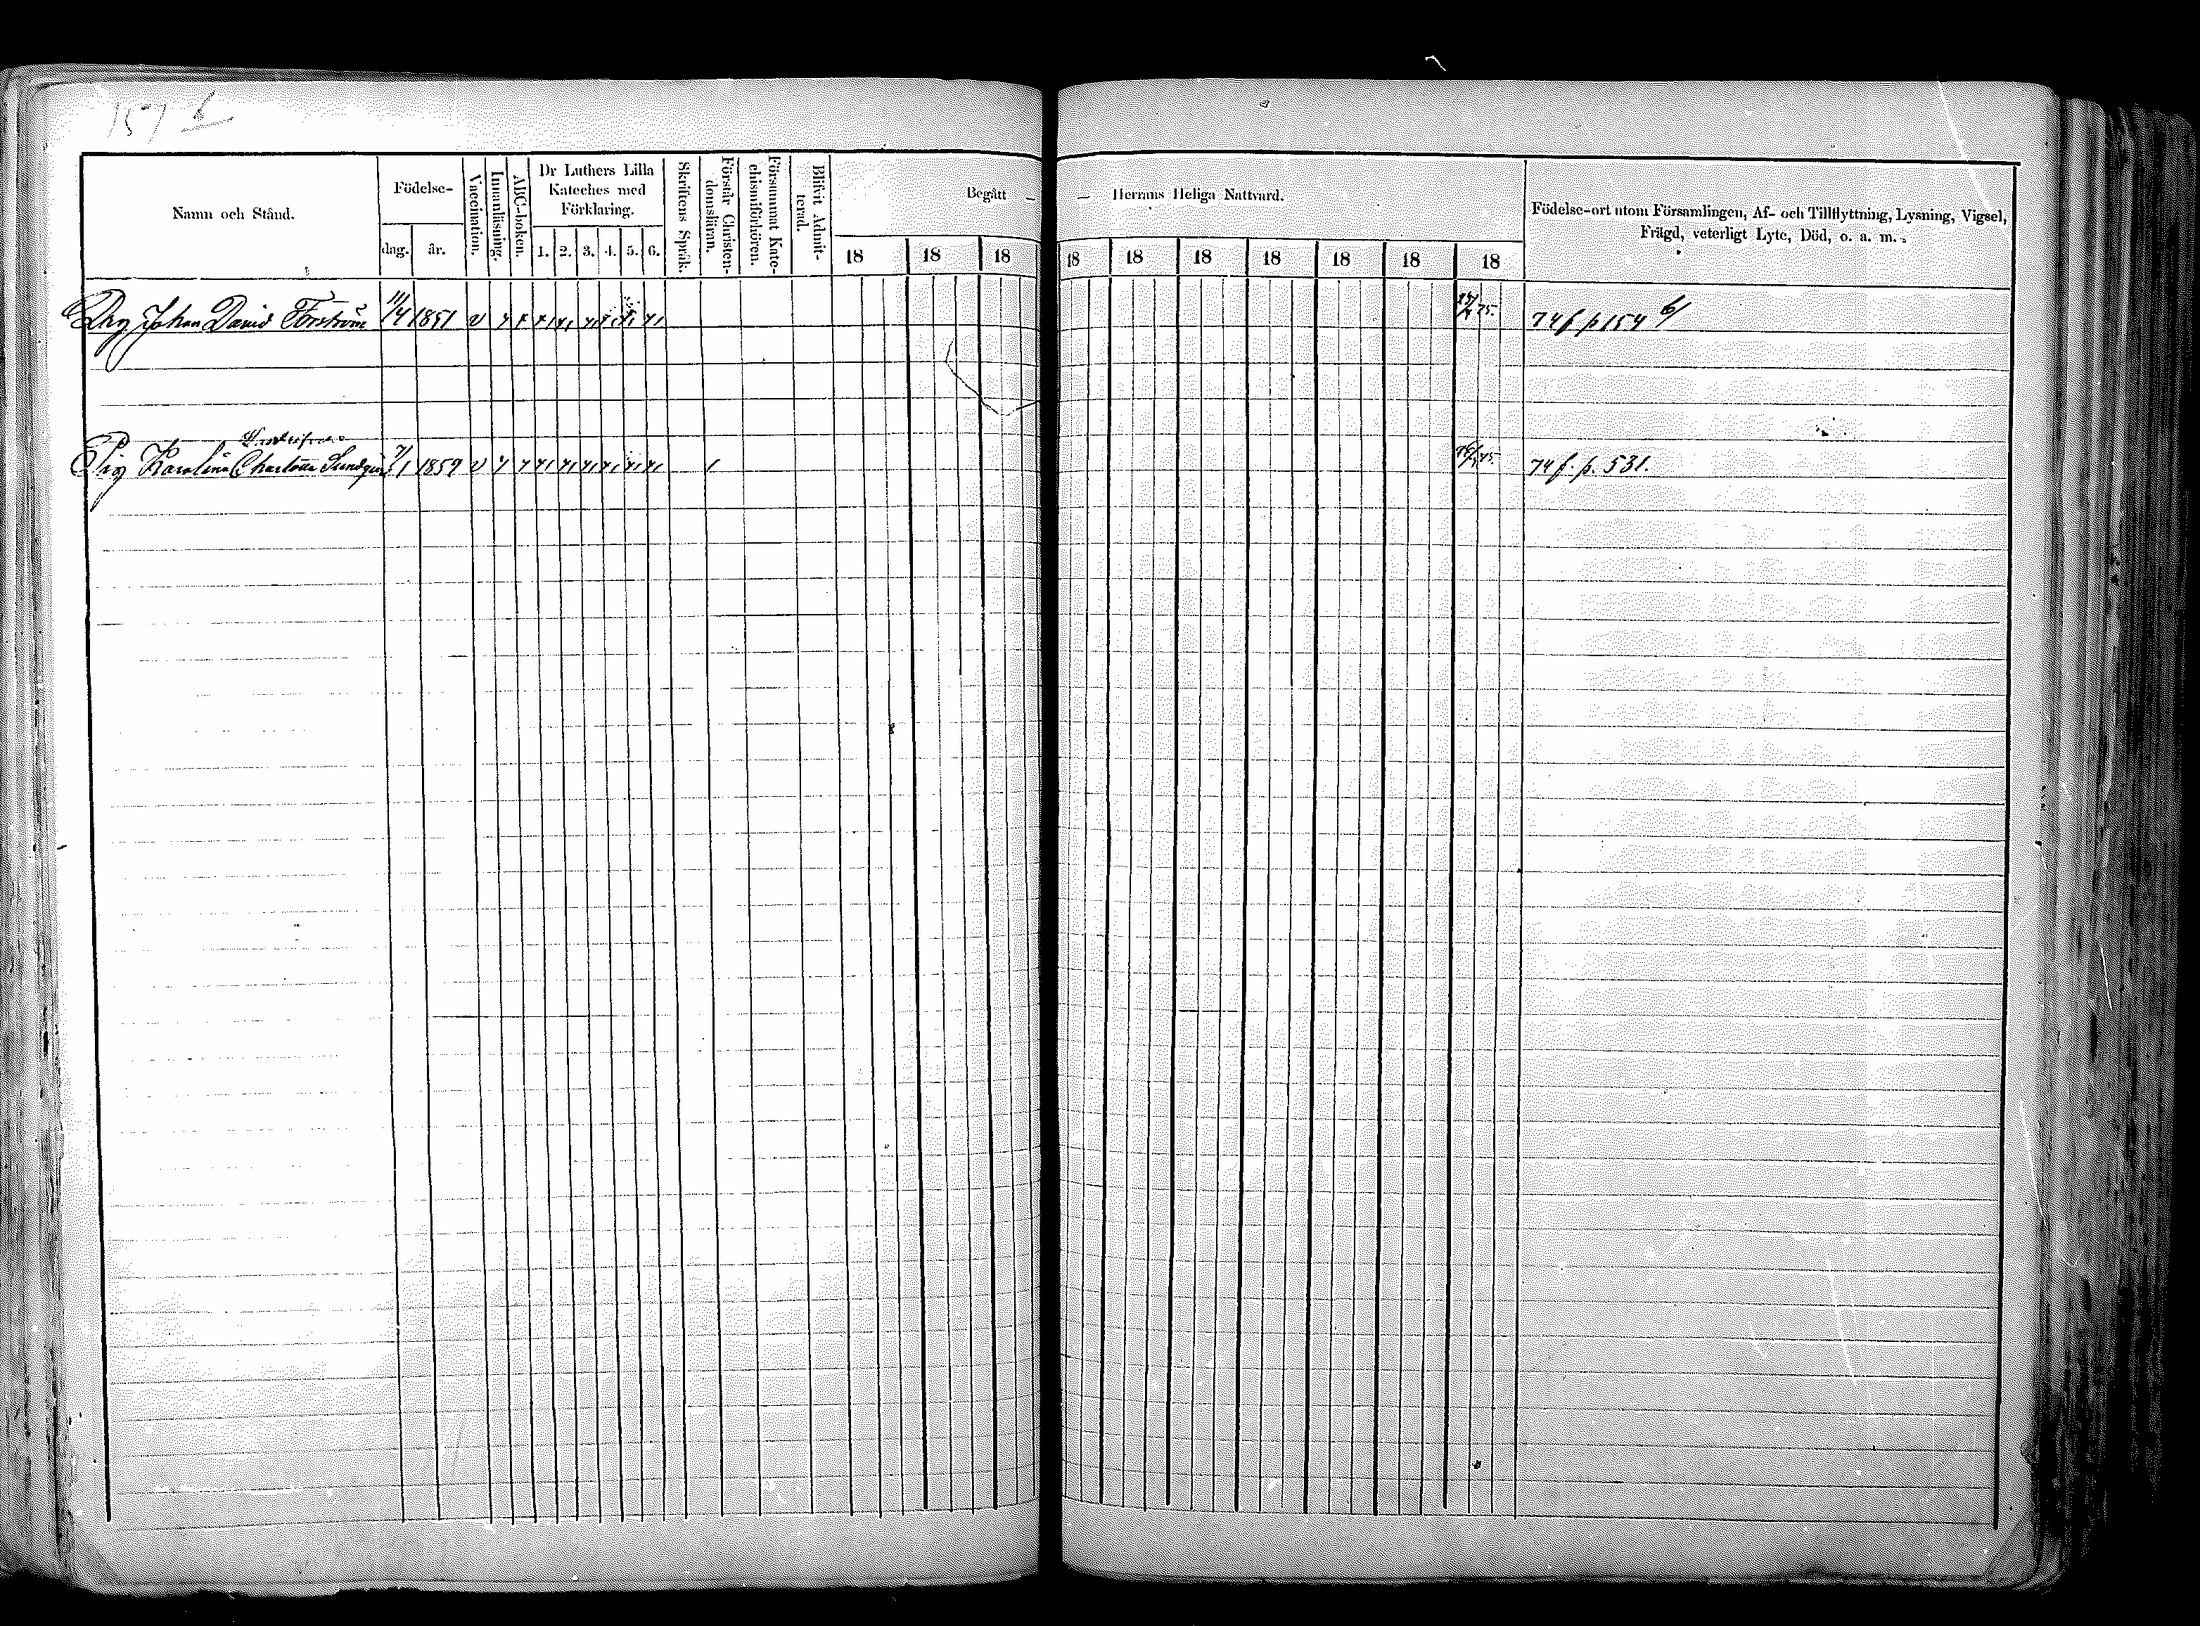 157 b
Namn och Stånd.
Födelse-
dag.
år.
Vaccination.
Innanläsning.
ABC-boken.
Dr Luthers Lilla
Kateches med
Förklaring.
1. 2. 3. 4. 5. 6.
Skriftens Språk.
Förstår Christen-
domsläran.
Försummat Kate-
chismiförhören.
Blifvit Admit-
terad.
Begått —
— Herrans Heliga Nattvard.
18 18 18 18 18 18 18 18 18 18
Födelse-ort utom Församlingen, Af- och Tillflyttning, Lysning, Vigsel,
Frägd, veterligt Lyte, Död, o. a. m.
Drg Johan David Forström 11/4 1851 v 74 f p 154 b/
Pig Karolina Charlotta Sundqvist 7/1 1859 v 74 f. p. 531.